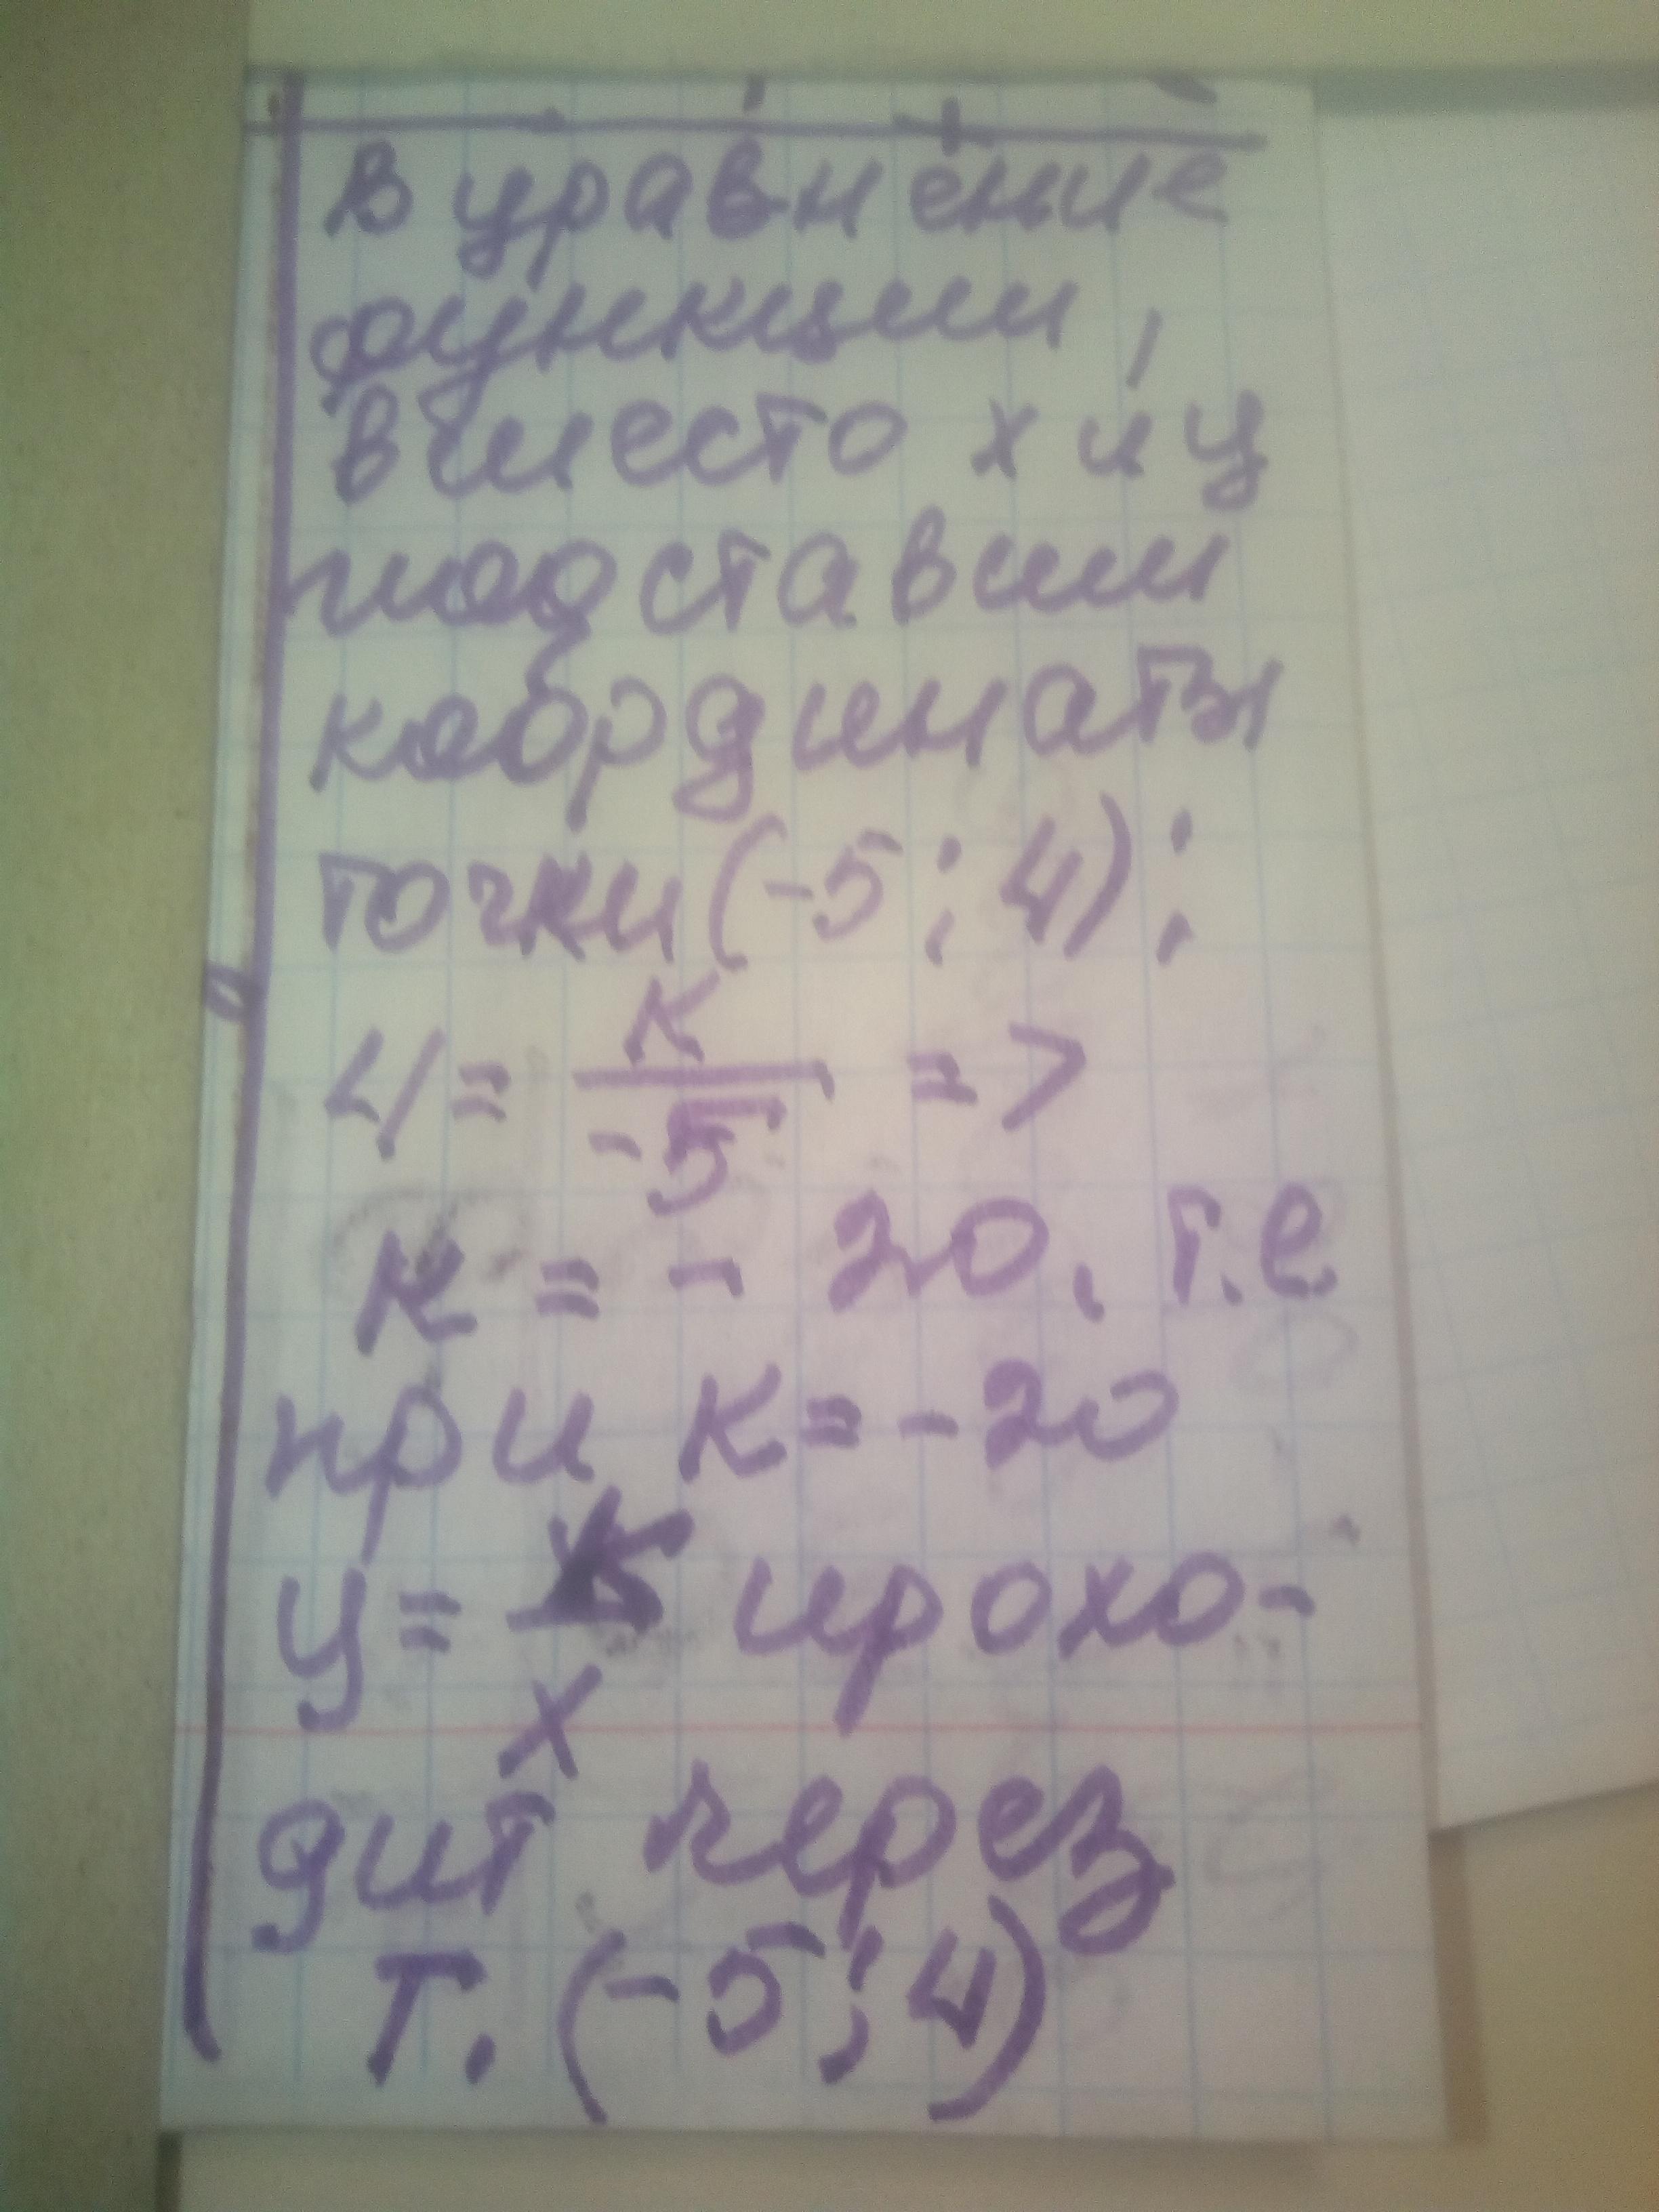 в уравнение
функции,
вместо x и y
подставим
координаты
точки (-5; 4):
4 = К/-5 =>
К = - 20, т.е
при К = - 20
y = К/x прохо-
дит через
т. (-5; 4)